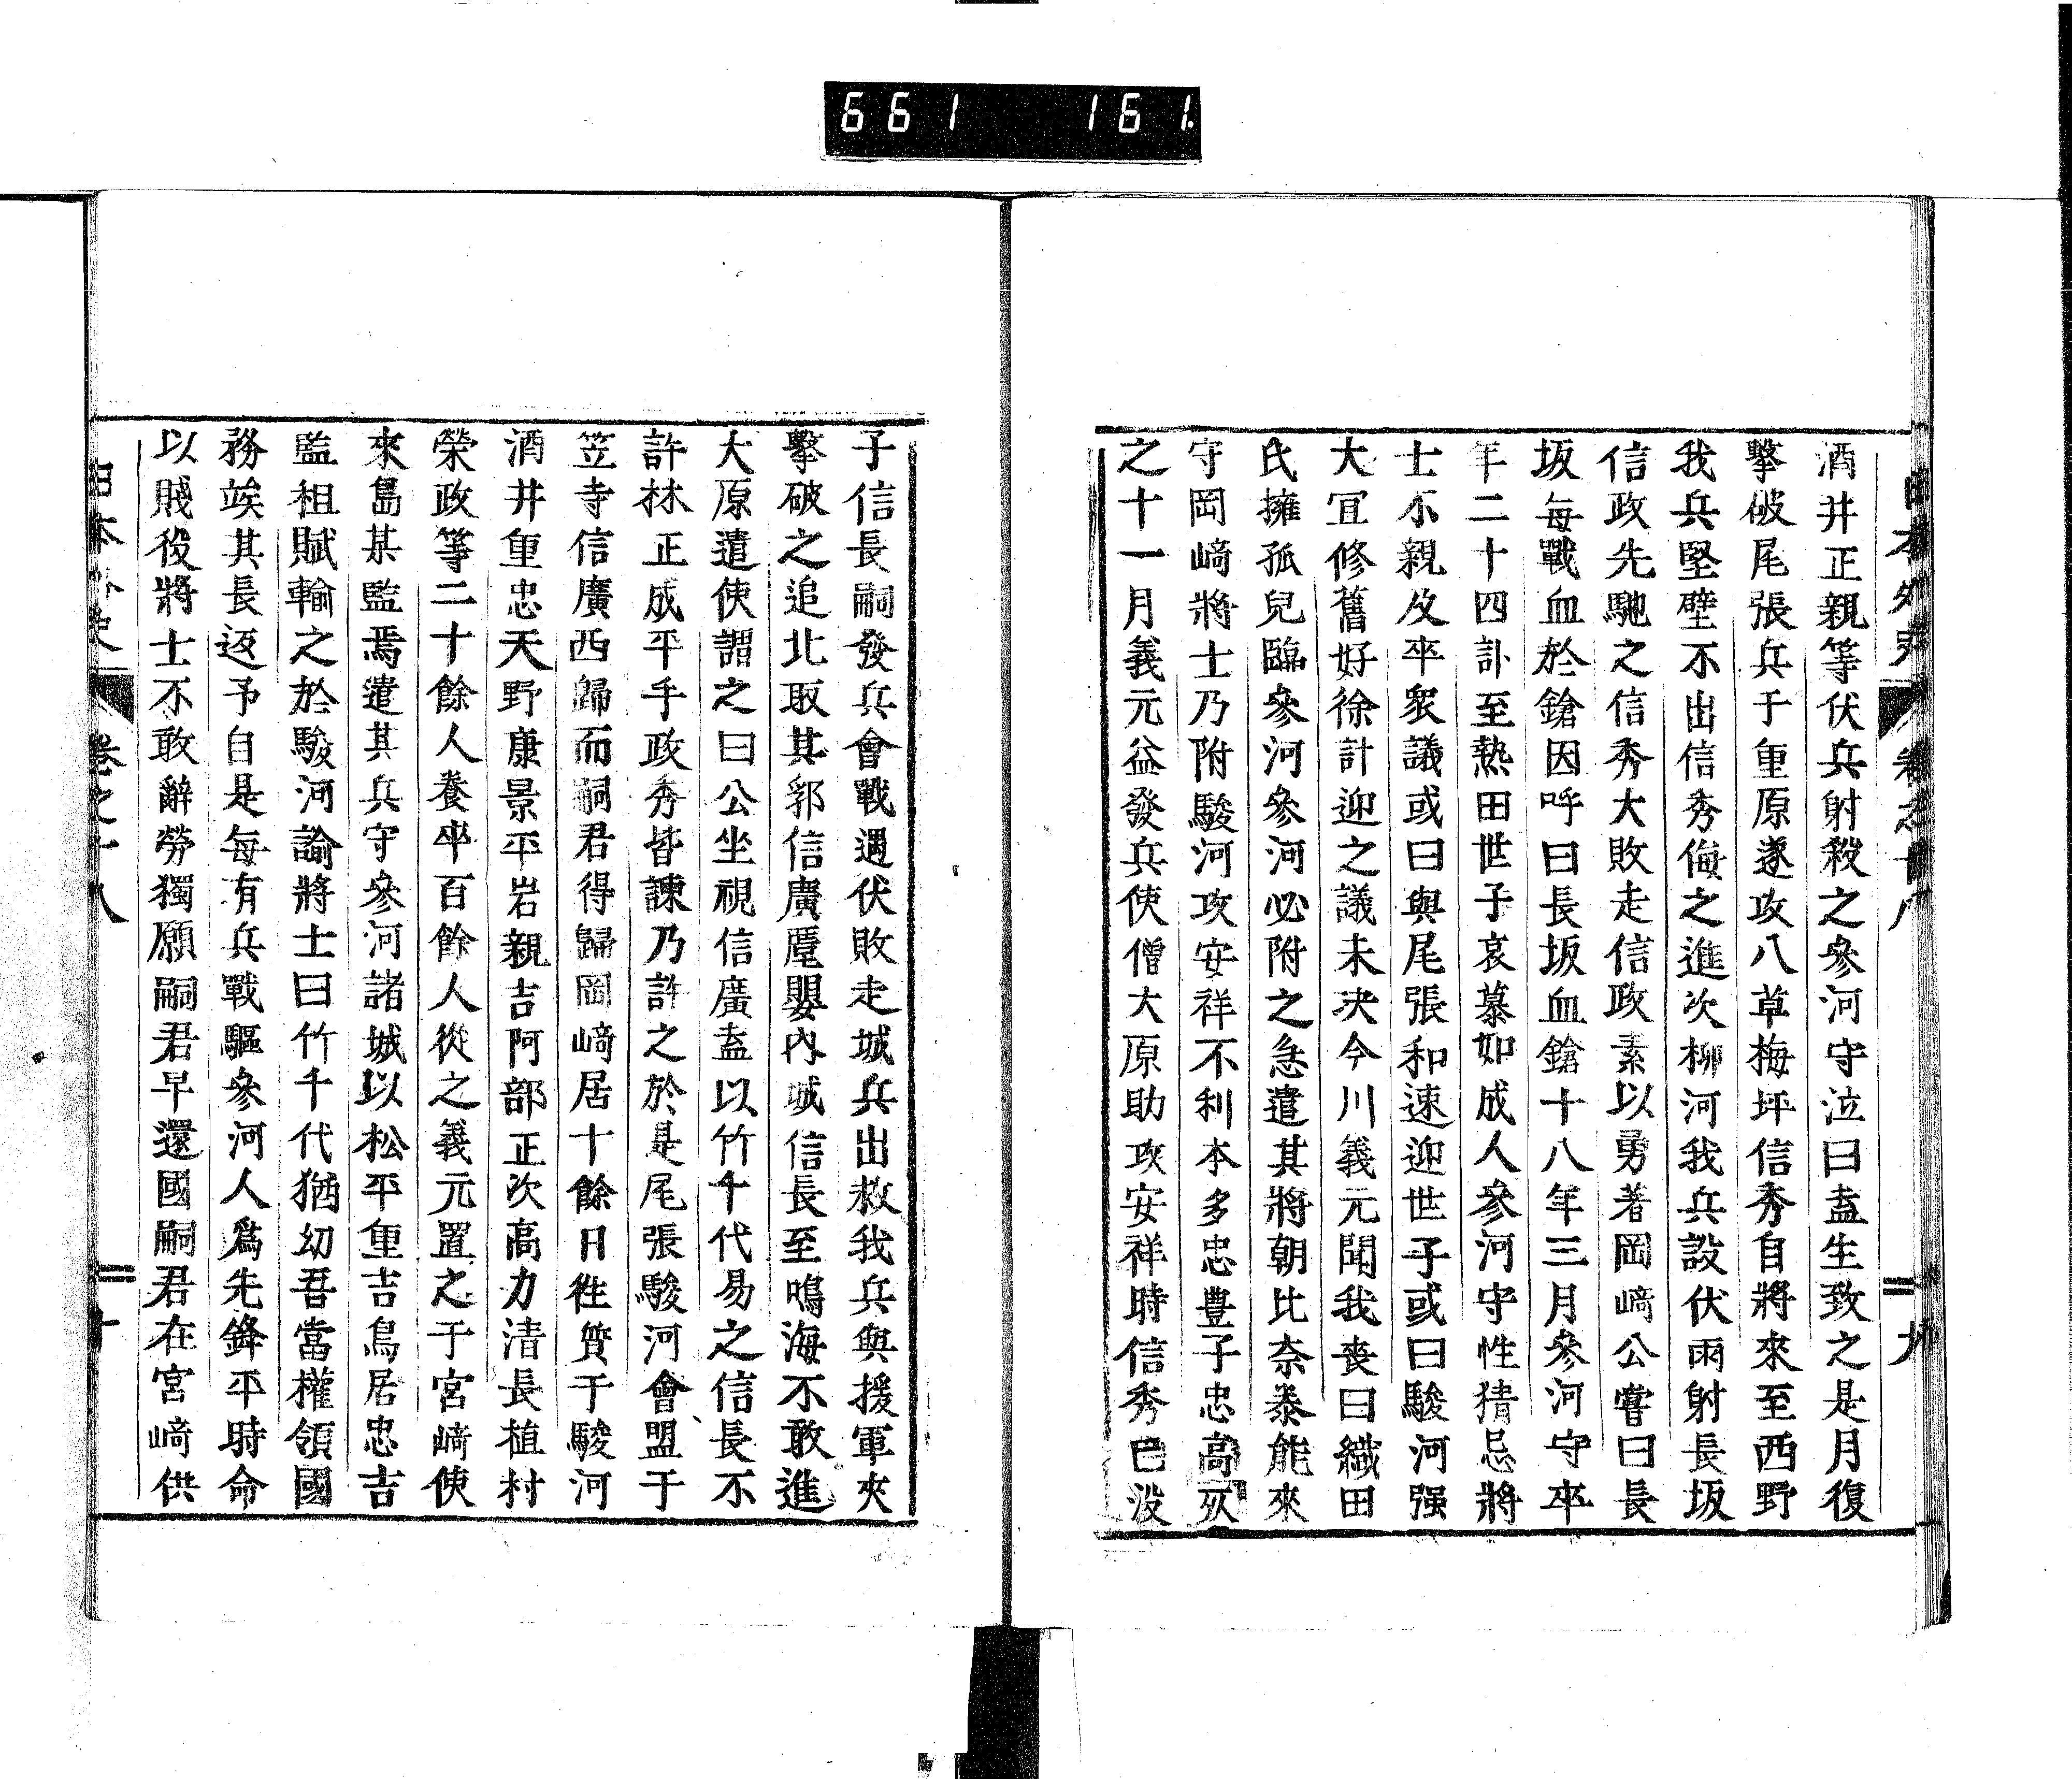 661 161.
日本外史 卷之十八 九
酒井正親等伏兵射殺之參河守泣曰盍生致之是月復
擊破尾張兵于重原遂攻八草梅坪信秀自將來至西野
我兵堅壁不出信秀侮之進次柳河我兵設伏雨射長坂
信政先馳之信秀大敗走信政素以勇著岡﨑公嘗曰長
坂每戰血於鎗因呼曰長坂血鎗十八年三月參河守卒
年二十四訃至熱田世子哀慕如成人參河守性猜忌將
士不親及卒衆議或曰與尾張和速迎世子或曰駿河强
大宜修舊好徐計迎之議未决今川義元聞我喪曰織田
氏擁孤兒臨參河參河必附之急遣其將朝比奈泰能來
守岡﨑將士乃附駿河攻安祥不利本多忠豊子忠高死
之十一月義元益發兵使僧大原助攻安祥時信秀已沒
子信長嗣發兵會戰遇伏敗走城兵出救我兵與援軍夾
擊破之追北取其郛信廣退嬰內城信長至鳴海不敢進
大原遣使謂之曰公坐視信廣盍以竹千代易之信長不
許林正成平手政秀皆諫乃許之於是尾張駿河會盟于
笠寺信廣西歸而嗣君得歸岡﨑居十餘日徃質于駿河
酒井重忠天野康景平岩親吉阿部正次高力清長植村
榮政等二十餘人養卒百餘人從之義元置之于宮﨑使
來島某監焉遣其兵守參河諸城以松平重吉鳥居忠吉
監租賦輸之於駿河諭將士曰竹千代猶幼吾當權領國
務竢其長返予自是每有兵戰驅參河人爲先鋒平時命
以賤役將士不敢辭勞獨願嗣君早還國嗣君在宮﨑供
日本外史 卷之十八 十